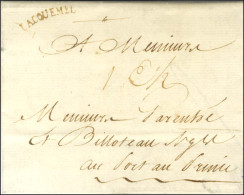 JACQUEMEL
A Messieurs
Messieurs Parenthé
et Billoteau
au Port au Prince